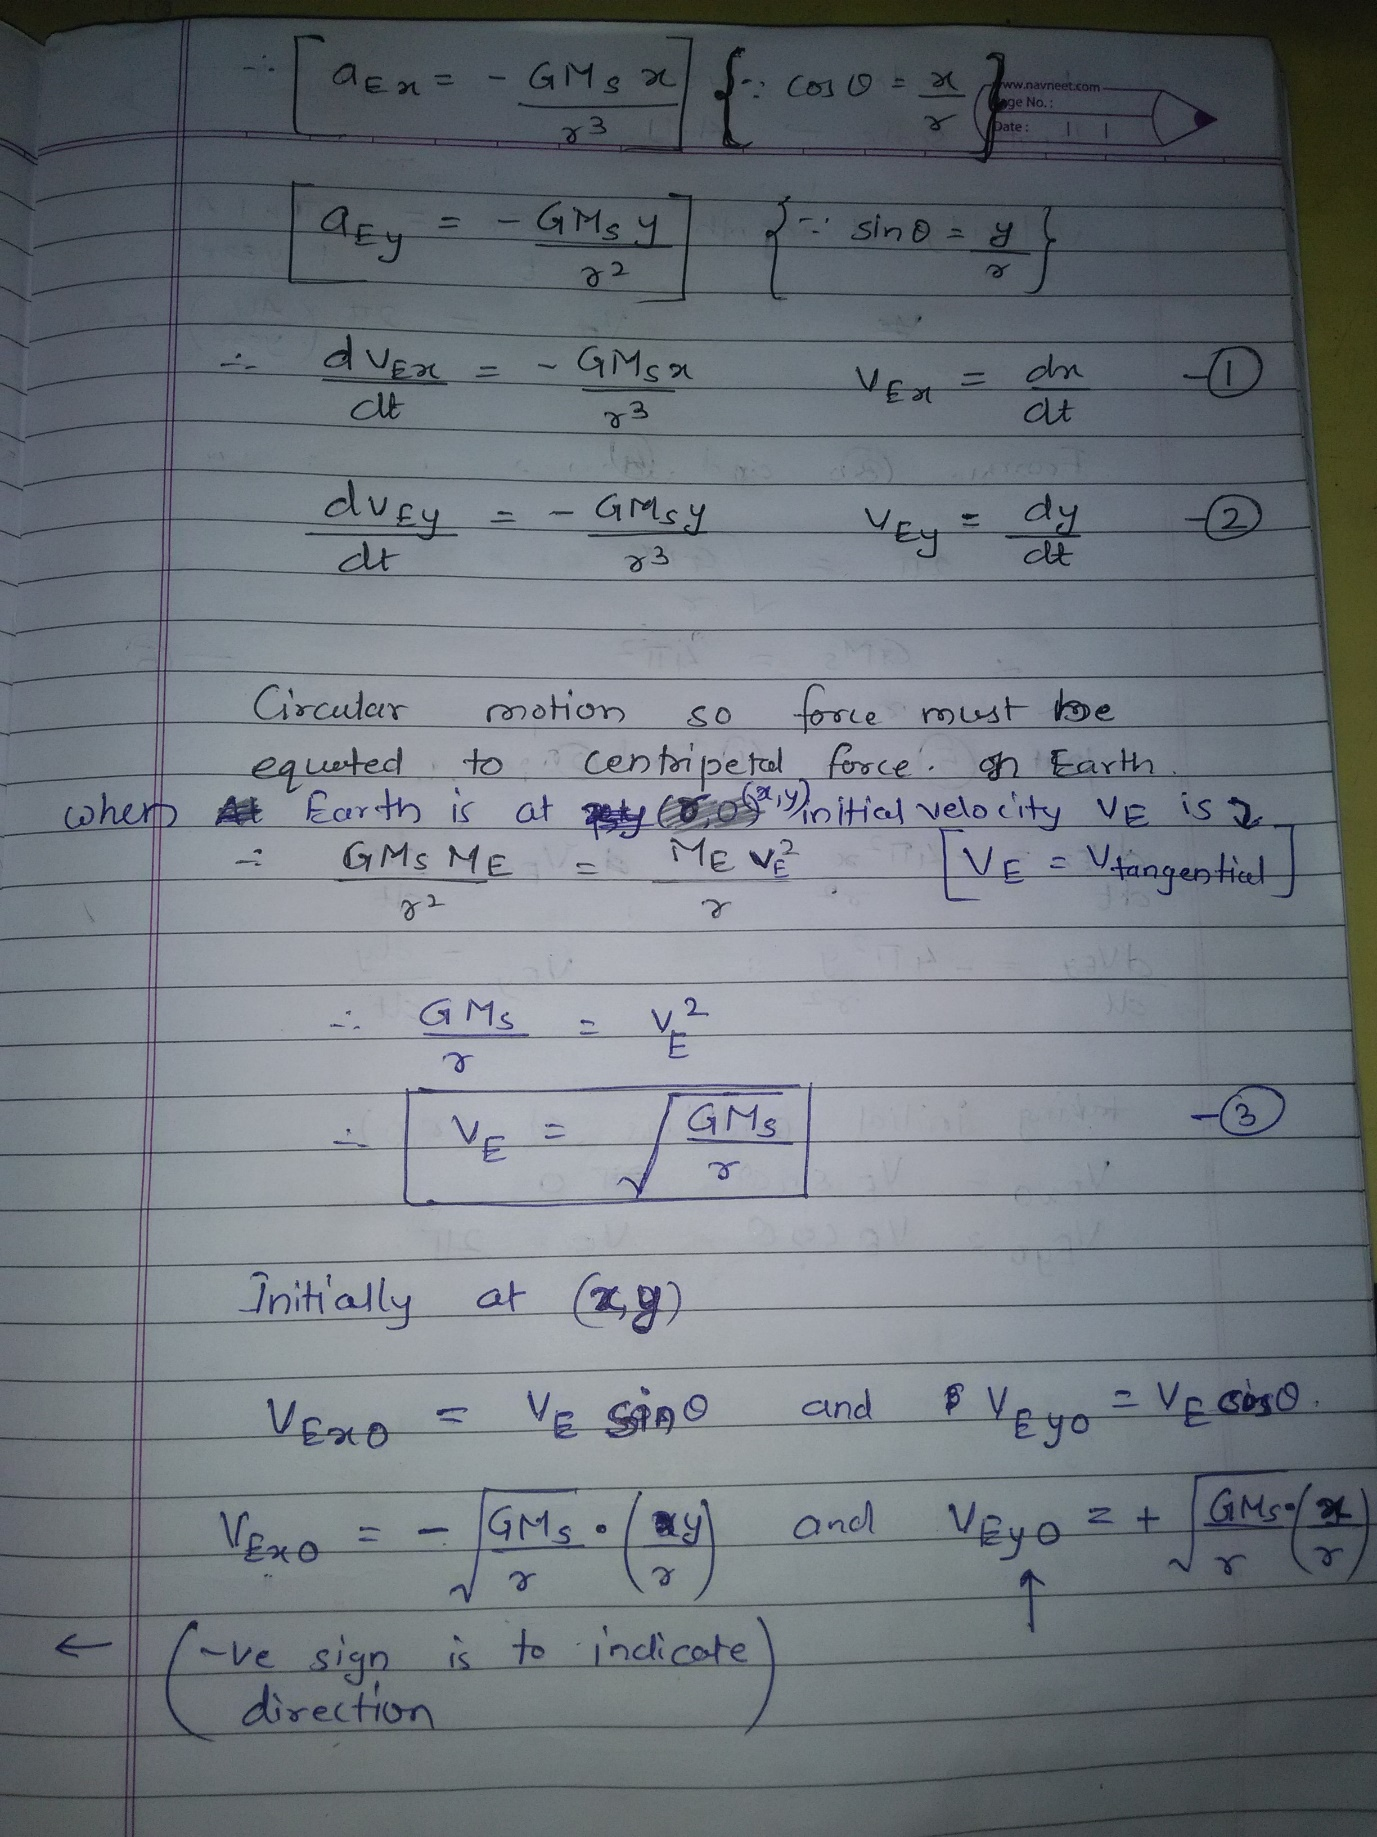 ∴ [ aEx = - GMs x / r3 ] { ∵ cos θ = x / r }
www.navneet.com
Page No.:
Date:
[ aEy = - GMs y / r2 ] { ∵ sin θ = y / r }
∴ dVEx / dt = - GMs x / r3 VEx = dx / dt - 1
dVEy / dt = - GMs y / r3 VEy = dy / dt - 2
Circular motion so force must be
equated to centripetal force. on Earth.
when Earth is at (x,y) initial velocity VE is
∴ GMs ME / r2 = ME VE2 / r [VE = Vtangential]
∴ GMs / r = VE2
∴ VE = √(GMs / r) - 3
Initially at (x,y)
VExo = VE sin θ and VEyo = VE cos θ.
VExo = - √(GMs / r) . (y / r) and VEyo = + √(GMs / r) . (x / r)
← ( -ve sign is to indicate ↑
direction )